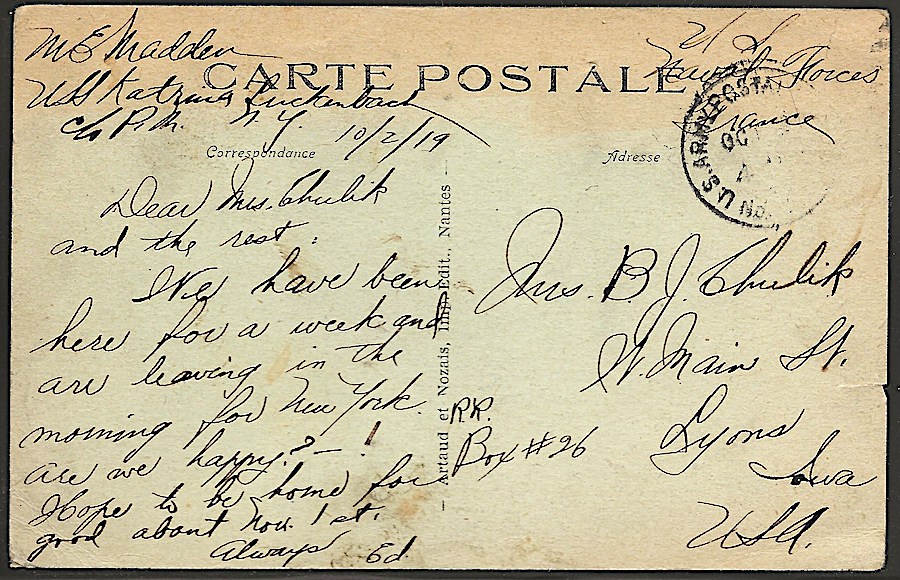 M E Madden
USS Katrina Luckenbach
c/o P.M. N.Y. 10/2/19
CARTE POSTALE
U S
Naval Forces
France
U.S. ARMY POSTAL
OCT
Correspondance
Adresse
Dear Mrs. Chulik
and the rest:
We have been
here for a week and
are leaving in the
morning for New York.
are we happy? — !
Hope to be home for
good about Nov. 1st.
Always Ed.
Artaud et Nozais, Imp. Edit., Nantes
Mrs. B. J. Chulik
W. Main St.
R.R.
Box #26
Lyons
Iowa
USA.